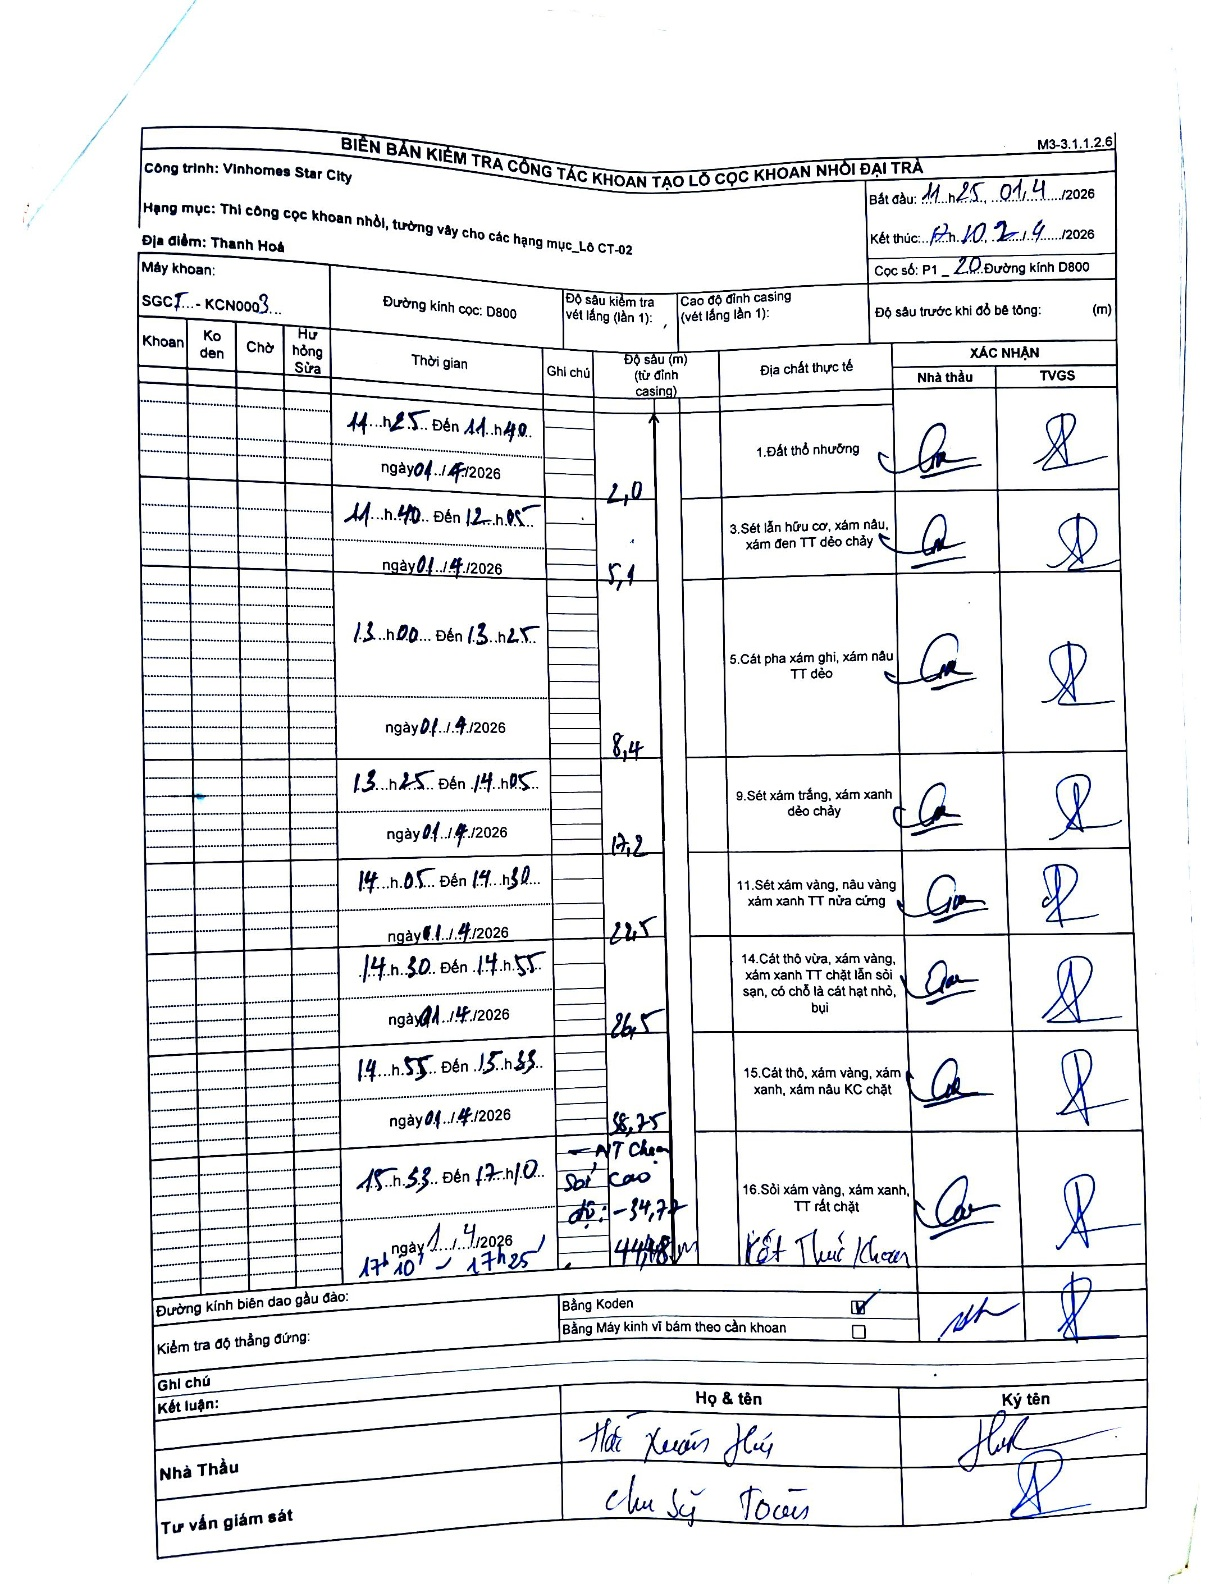 M3-3.1.1.2.6
BIÊN BẢN KIỂM TRA CÔNG TÁC KHOAN TẠO LỖ CỌC KHOAN NHỒI ĐẠI TRÀ
Công trình: Vinhomes Star City
Hạng mục: Thi công cọc khoan nhồi, tường vây cho các hạng mục_Lô CT-02
Địa điểm: Thanh Hoá
Bắt đầu: 11 h25 01/4 /2026
Kết thúc: 17h10 2/4 /2026
Cọc số: P1 _ 20 Đường kính D800
Máy khoan:
SGCI - KCN0003
Đường kính cọc: D800
Độ sâu kiểm tra vét lắng (lần 1):
Cao độ đỉnh casing (vét lắng lần 1):
Độ sâu trước khi đổ bê tông: (m)
Khoan
Ko den
Chờ
Hư hỏng Sửa
Thời gian
Ghi chú
Độ sâu (m) (từ đỉnh casing)
Địa chất thực tế
XÁC NHẬN
Nhà thầu
TVGS
11 h25 Đến 11 h40
ngày 01/4/2026
2,0
1.Đất thổ nhưỡng
11 h 40 Đến 12 h 05
ngày 01/4/2026
5,1
3.Sét lẫn hữu cơ, xám nâu,
xám đen TT dẻo chảy
13 h00 Đến 13 h25
ngày 01/4/2026
8,4
5.Cát pha xám ghi, xám nâu
TT dẻo
13 h25 Đến 14 h05
ngày 01/4/2026
17,2
9.Sét xám trắng, xám xanh
dẻo chảy
14 h 05 Đến 14 h30
ngày 01/4/2026
22,5
11.Sét xám vàng, nâu vàng
xám xanh TT nửa cứng
14 h 30 Đến 14 h 55
ngày 01/4/2026
26,5
14.Cát thô vừa, xám vàng,
xám xanh TT chặt lẫn sỏi
sạn, có chỗ là cát hạt nhỏ,
bụi
14 h 55 Đến 15 h 33
ngày 01/4/2026
38,75
15.Cát thô, xám vàng, xám
xanh, xám nâu KC chặt
15 h 33 Đến 17 h10
ngày 1/4/2026
17h 10' - 17h25'
- NT Chạm
Sỏi cao
độ: -34,77
16.Sỏi xám vàng, xám xanh,
TT rất chặt
Kết Thúc Khoan
Đường kính biên dao gầu đào:
Kiểm tra độ thẳng đứng:
Bằng Koden
Bằng Máy kinh vĩ bám theo cần khoan
Ghi chú
Kết luận:
Họ & tên
Ký tên
Nhà Thầu
Xuân
Tư vấn giám sát
Chu Sỹ Toàn